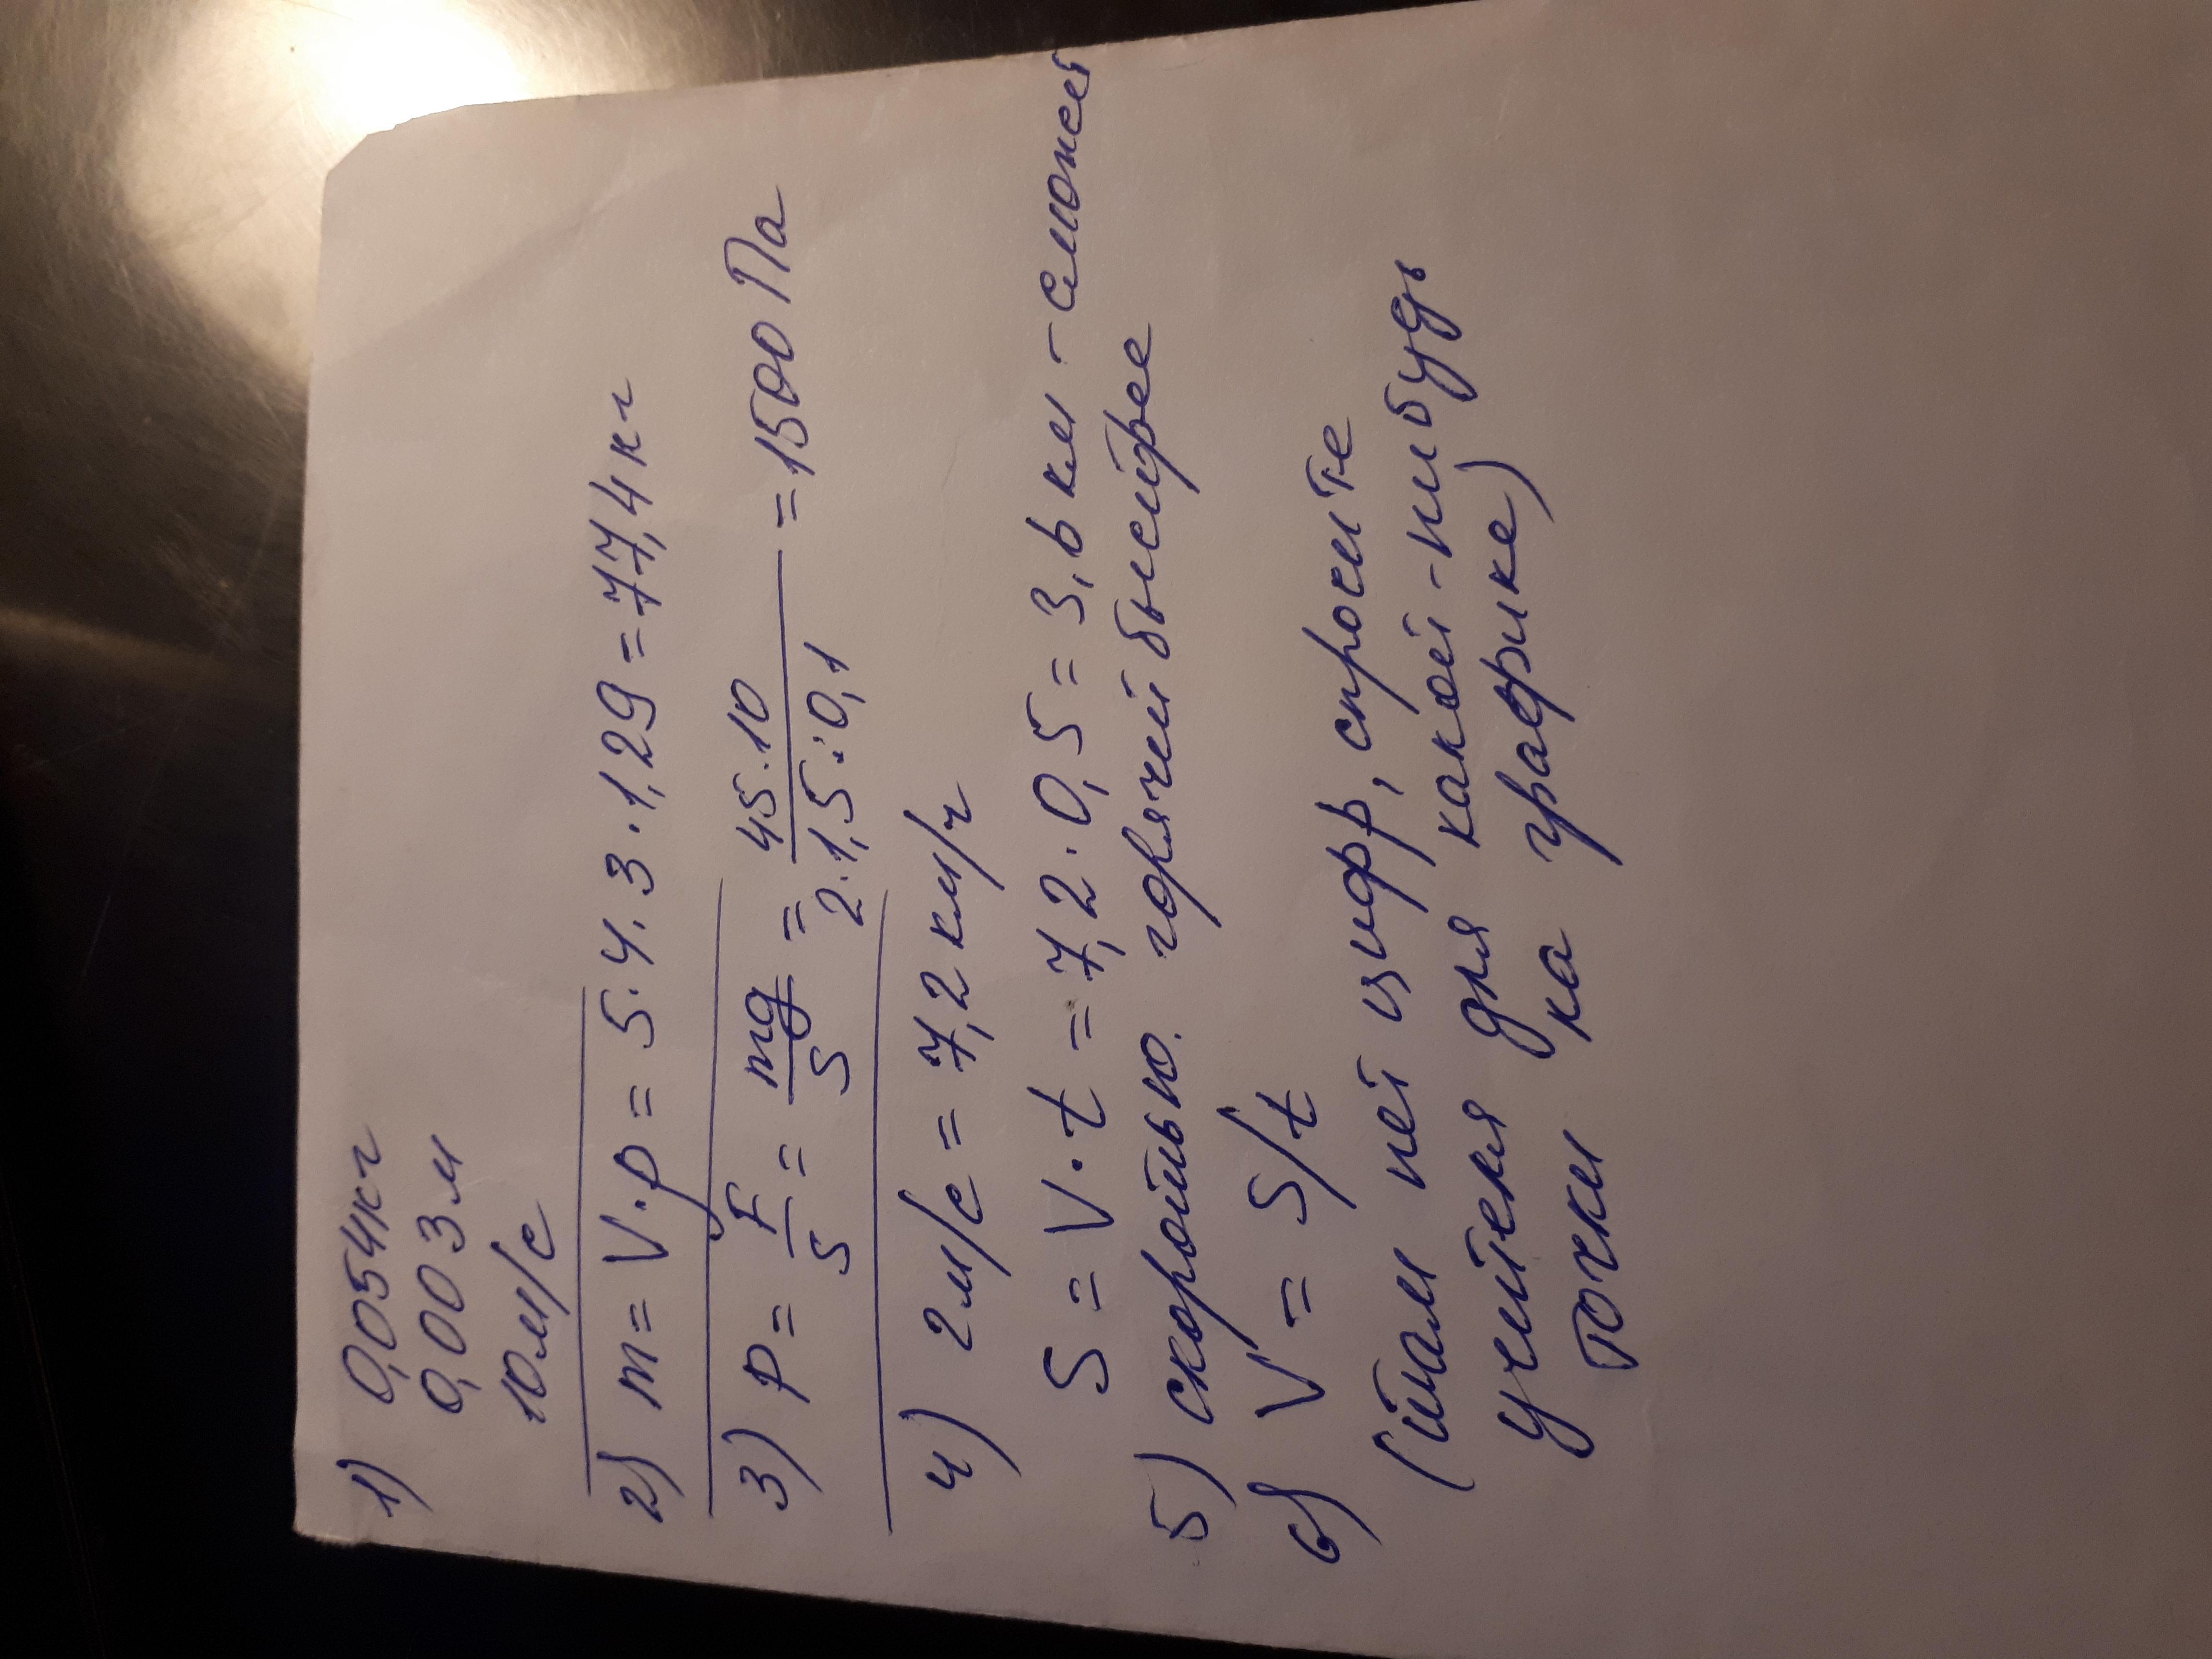 1) 0,054кг
0,003м
10м/с
2) m = V·ρ = 5·4·3·1,29 = 77,4кг
3) p = F/S = mg/S = 45·10/2·1,5·0,1 = 1500 Па
4) 2м/с = 7,2км/ч
S = V·t = 7,2·0,5 = 3,6км - сможет
5) скоростью. горячей быстрее
6) V = S/t
(там нет цифр, спросите
учителя для какой-нибудь
точки на графике)